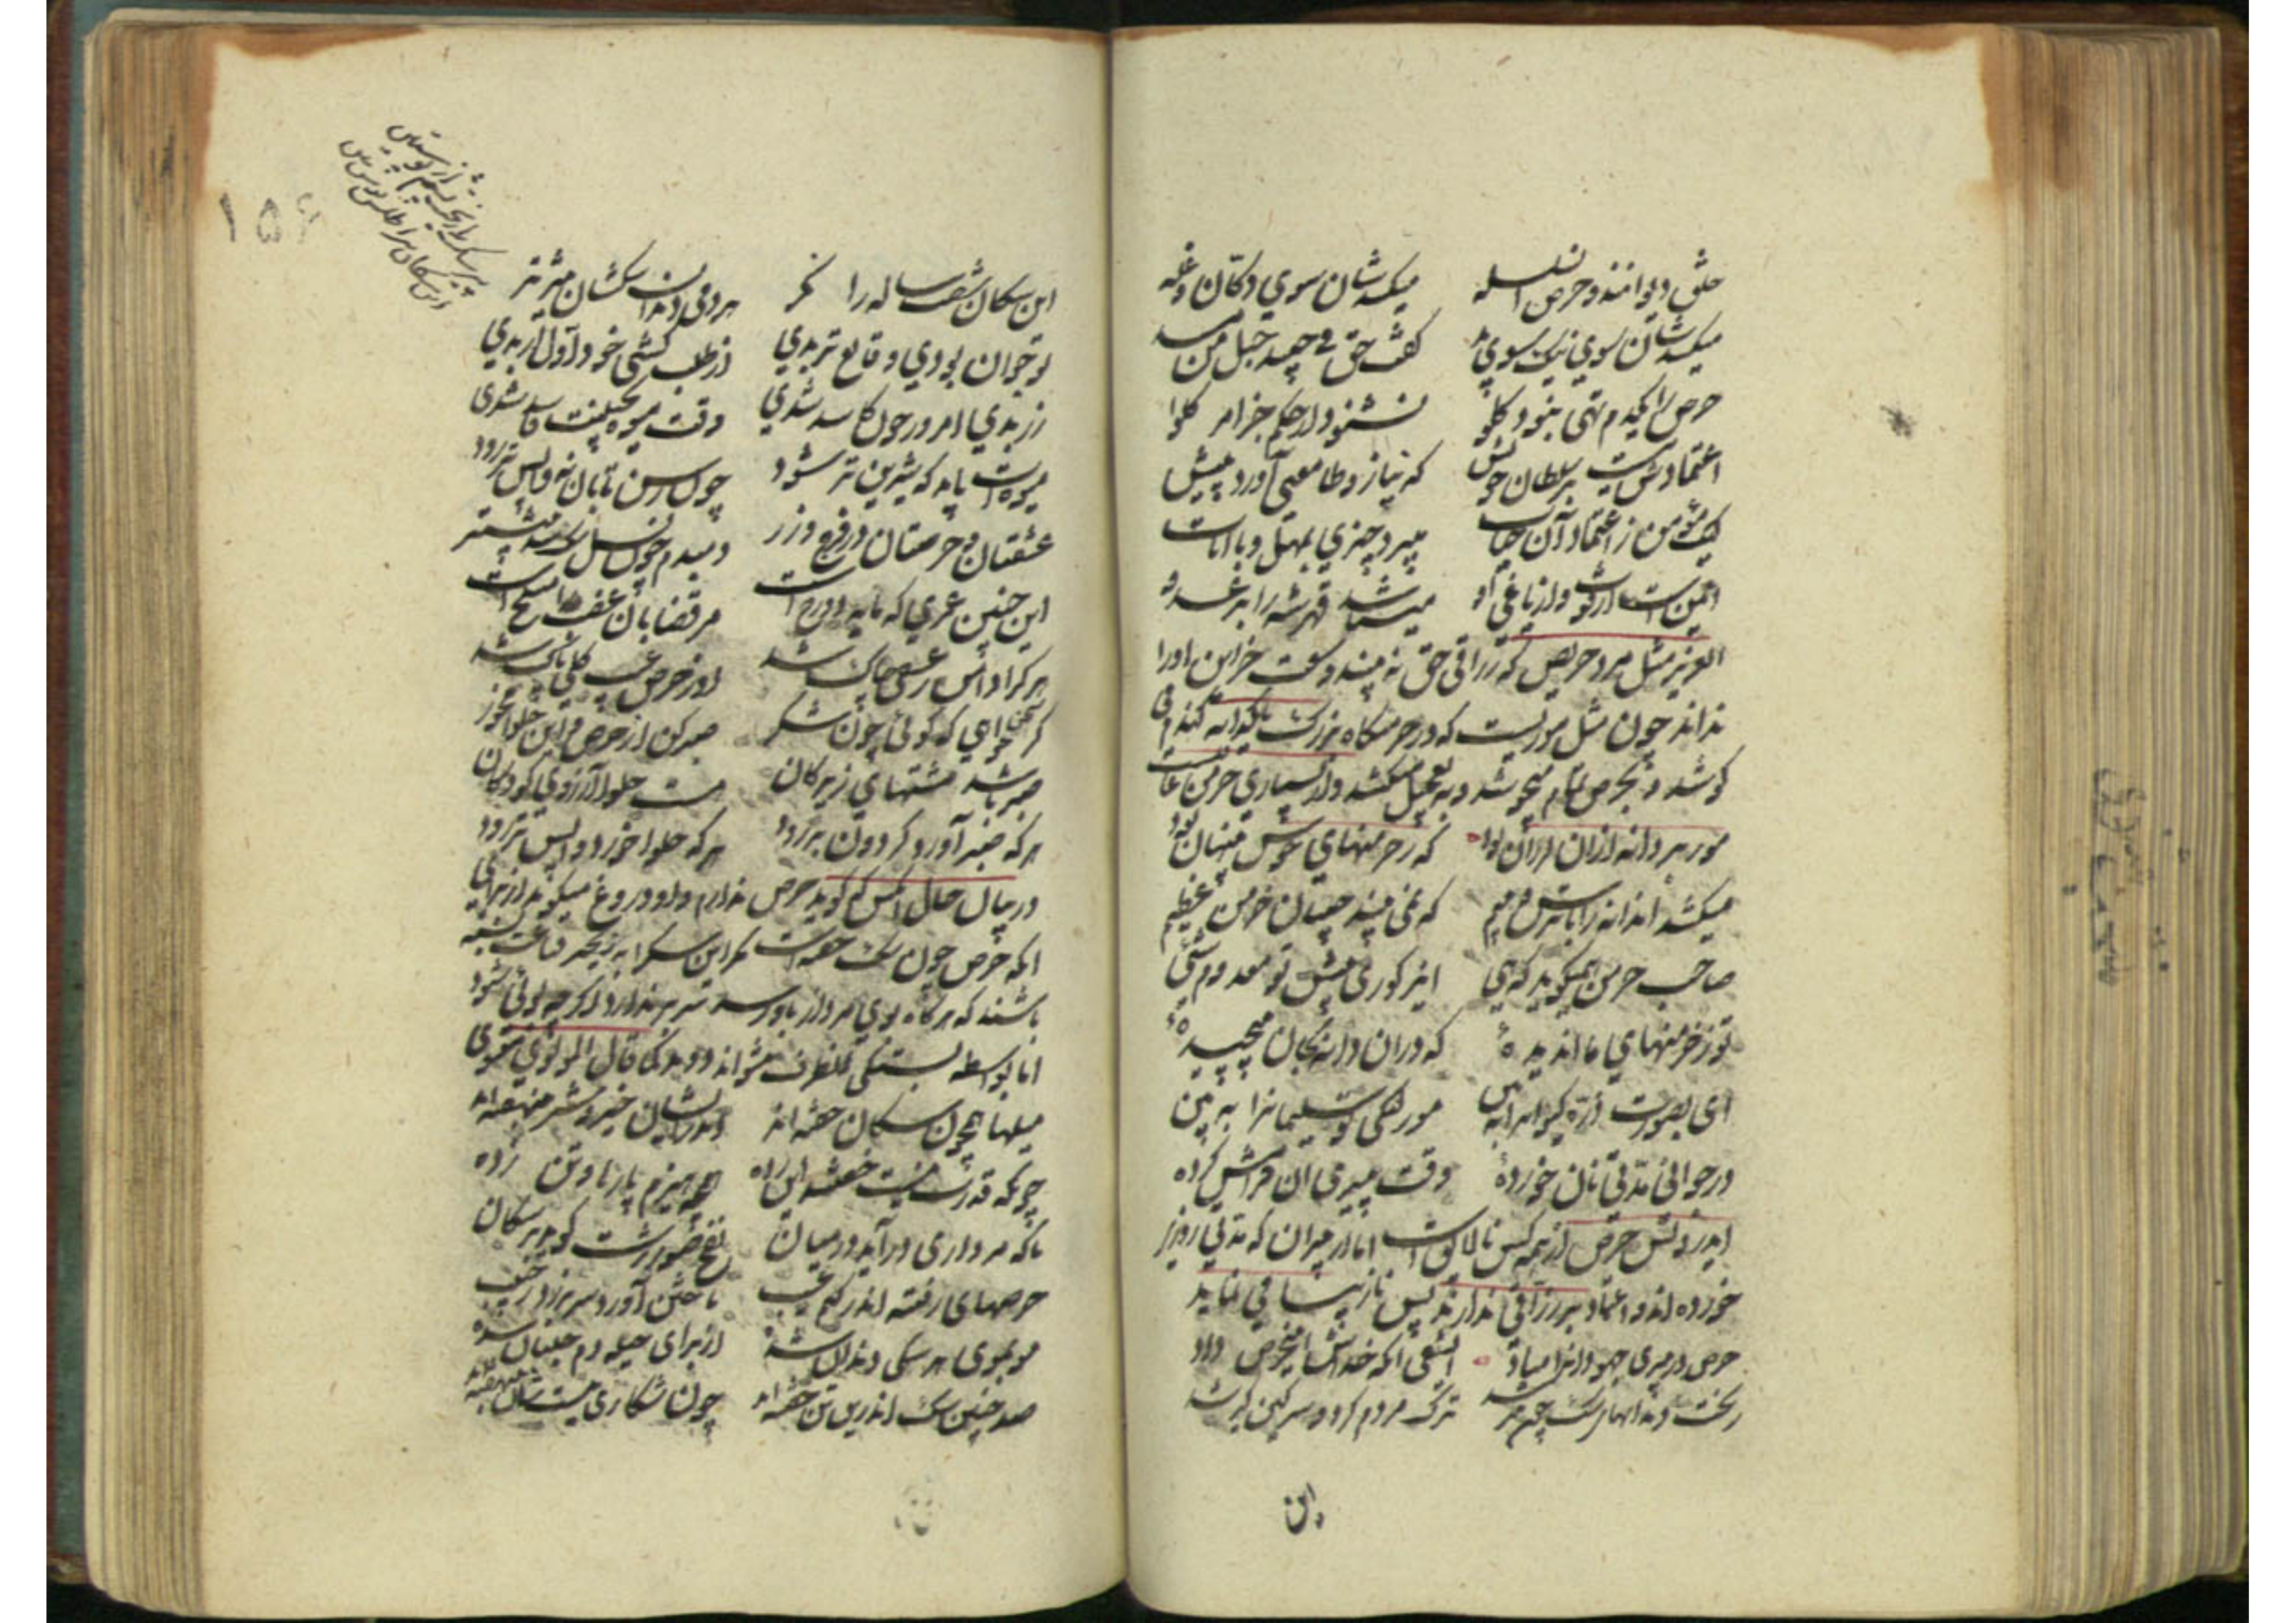 خلق دیوانند و حرص سلسله میکشدشان سوی دکان و غله
میکشدشان سوی نیک و سوی بد گفت حق فی جیدها حبل من مسد
حرص را یکدم تهی نبود گلو نشنود از حکم جز امر کلوا
اعتمادش نیست بر سلطان خویش که نیاز و طامعی آورد پیش
لیک مؤمن ز اعتماد آن حیات میبرد چیزی بمهل و با انات
ایمن است از فوت و از یاغی که او میشناسد قهر شه را بر عدو
العزیز مثل مرد حریص که رزاقی حق نه بیند و سعت خزاین او را
نداند چون مثل موریست که در خرمنگاه بزرگ بیکدانه گندم
کوشد و بحرص تمام میجوشد و به تعجیل میکشد و از بسیاری خرمن غافلست
مور بر دانه از آن لرزان بود که ز خرمنهای خوش پنهان بود
میکشد آن دانه را با ترس و بیم که نمی بیند چنان خرمن عظیم
صاحب خرمن همی گوید که ای ای ز کوری پیش تو معدوم شی
تو ز خرمنهای ما آن دیده‌ که در آن دانه بجان پیچیده‌
ای بصورت ذره کیوان را ببین مور لنگی رو سلیمان را به بین
در جوانی مدتی نان خورده‌ وقت پیری آن فرامش کرده
ای درویش حرص از همه کس نالایق است اما از پیران که مدتی روزی
خورده اند و اعتماد بر رزاقی ندارند پس نازیبا می نماید
حرص در پیری جهودانرا مباد ای شقی آنکه خداش این حرص داد
ریخت دندانهای سگ چون پیر شد ترک مردم کرد و سرگین گیر شد
این
۱۵۶
پیر سگ را ریخت پشم از پوستین
این سگان پیر اطلس پوش بین
این سگان شصت ساله را نگر هر دمی دندان سگشان تیزتر
تو جوان بودی و قانع تر بدی زر طلب گشتی خود اول زر بدی
رز بدی امروز چون کاسد شدی وقت میوه پختنت فاسد شدی
میوه‌ات باید که شیرین تر شود چون رسن تابان نه واپس تر رود
عشقشان و حرصشان در فرج و زر دمبدم چون نسل سگ بین بیشتر
این چنین عمری که مایه دوزخ است مر قصابان غضب را مسلخ است
هر کرا دامن ز عشقی چاک شد او ز حرص و عیب کلی پاک شد
گر سخن خواهی که گوئی چون شکر صبر کن از حرص و این حلوا مخور
صبر باشد مشتهای زیرکان هست حلوا آرزوی کودکان
هر که صبر آورد گردون بر رود هر که حلوا خورد واپس تر رود
در بیان حال آنکس که گوید حرص ندارم و او دروغ میگوید از برای
آنکه حرص چون سگ خفته است مگر این سگ را به زنجیر قناعت بسته
باشند که هرگاه بوی مردار باو رسد سر بردارد اگر چه بوئی شنود
اما بواسطه بستگی بطرف نتواند دوید کما قال المولوی معنوی
میلها همچون سگان خفته اند اندر ایشان خیر و شر بنهفته اند
چونکه قدرت نیست خفتند این رده همچو هیزم پاره‌ها و تن زده
تا که مرداری در آید در میان نفخ صور حرص کوبد بر سگان
حرصهای رفته اندر کتم غیب تاختن آورد سر بر زد ز جیب
مو بموی هر سگی دندان شده از برای حیله دم جنبان شده
صد چنین سگ اندرین تن خفته اند چون شکاری نیستشان بنهفته اند